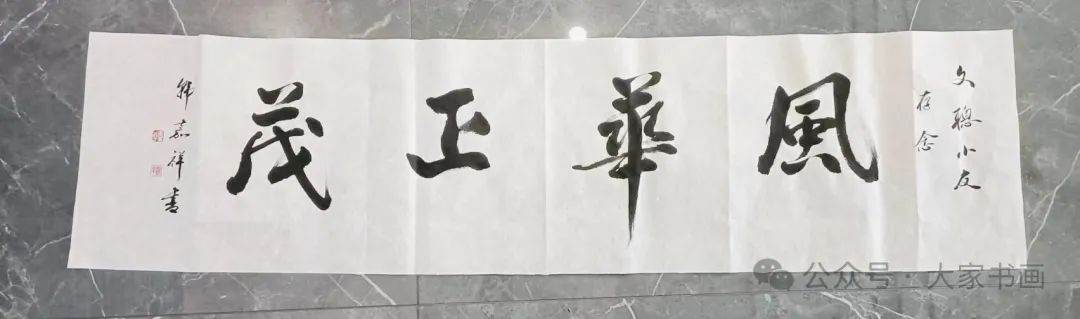 文聪小友
存念
風華正茂
韩嘉祥书
公众号·大家书画